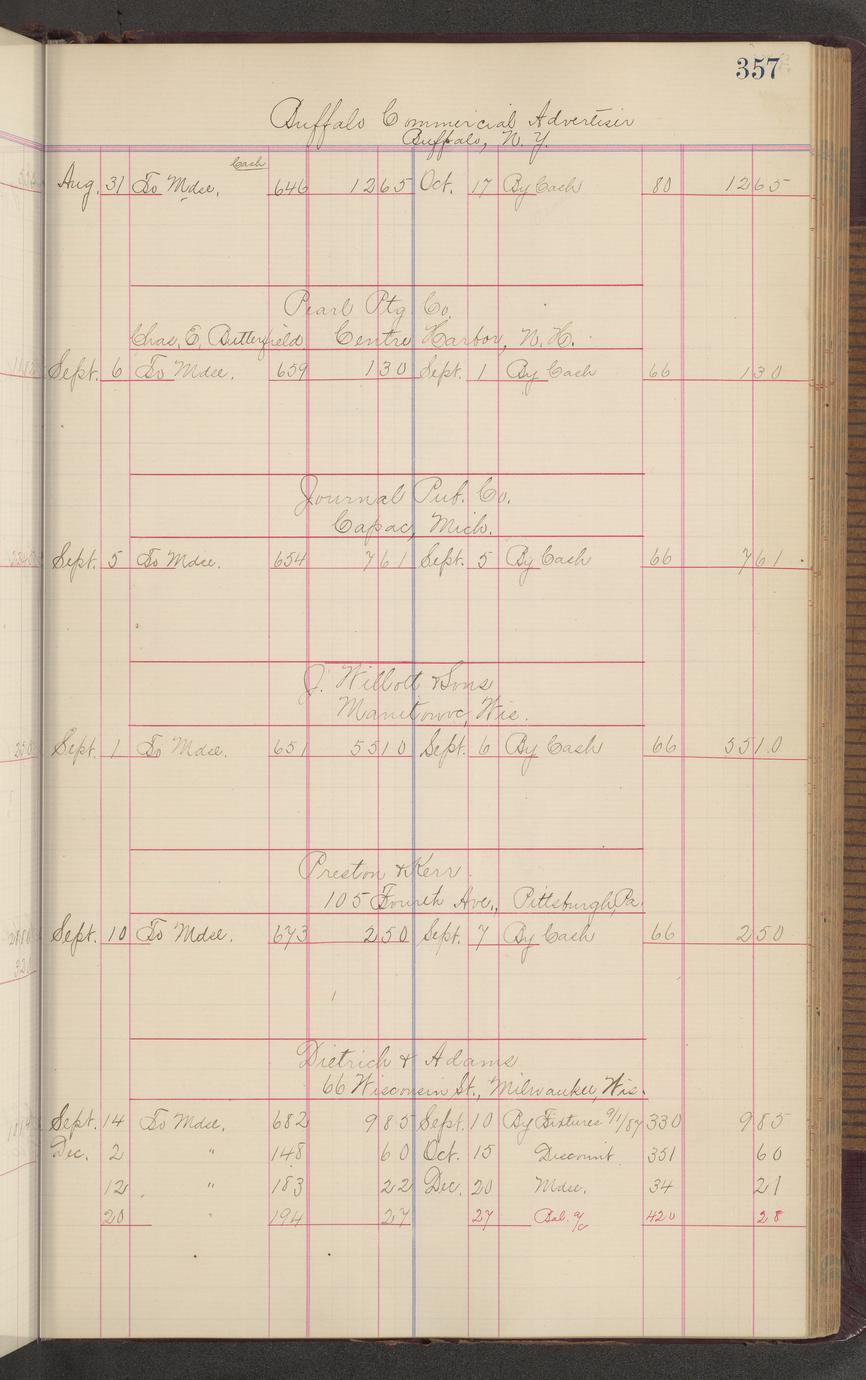 357
Buffalo Commercial Advertiser
Buffalo, N. Y.
Cash
Aug. 31 To Mdse. 646 1265 Oct. 17 By Cash 80 1265
Pearl Ptg. Co.
Chas. E. Butterfield Centre Harbor, N. H.
Sept. 6 To Mdse. 659 130 Sept. 1 By Cash 66 130
Journal Pub. Co.
Capac, Mich.
Sept. 5 To Mdse. 654 761 Sept. 5 By Cash 66 761
J. Willott & Sons
Manitowoc, Wis.
Sept. 1 To Mdse. 651 5510 Sept. 6 By Cash 66 5510
Preston & Kerr
105 Fourth Ave., Pittsburgh, Pa.
Sept. 10 To Mdse. 673 250 Sept. 7 By Cash 66 250
Dietrich & Adams
66 Wisconsin St., Milwaukee, Wis.
Sept. 14 To Mdse. 682 985 Sept. 10 By Fixtures 9/1/87 330 985
Dec. 2 " 148 60 Oct. 15 Discount 351 60
12 " 183 22 Dec. 20 Mdse. 34 21
20 " 194 27 27 Bal. a/c 420 28